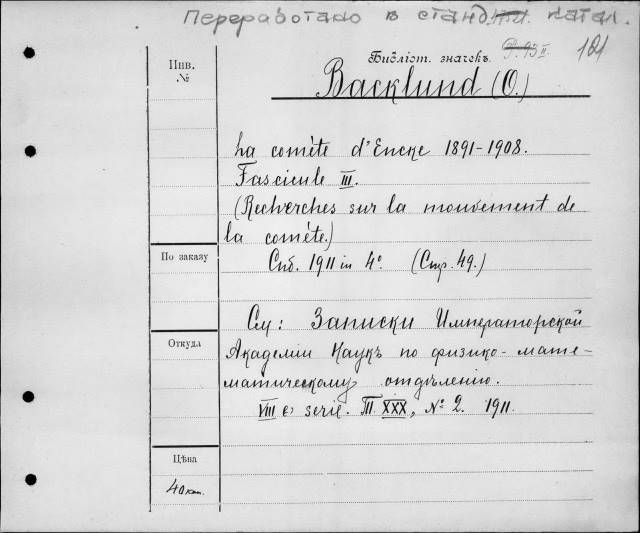 Переработано в станд. катал.
Инв.
№
Библіот. значекъ.
P. 93 II.
Backlund (O.)
La comète d'Encke 1891-1908.
Fascicule III.
(Recherches sur la mouvement de
la comète.)
По заказу
Спб. 1911 in 4º (Стр. 49.)
Откуда
См: Записки Императорской
Академіи Наукъ по физико-мате-
матическому отдѣленію.
VIII e serie. Т. XXX, № 2. 1911.
Цѣна
40 коп.